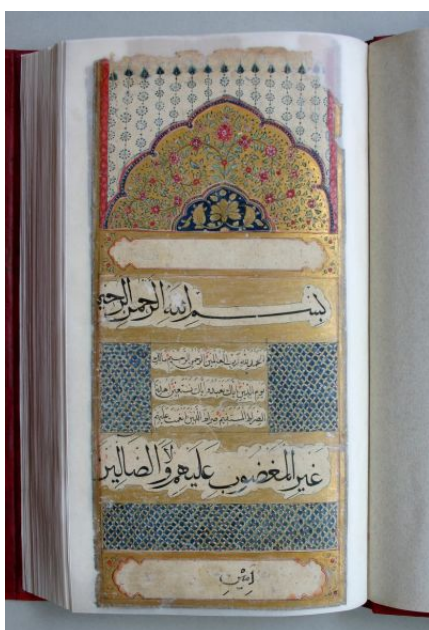 بسم الله الرحمن الرحيم
الحمد لله رب العالمين الرحمن الرحيم مالك
يوم الدين اياك نعبد و اياك نستعين اهدنا
الصراط المستقيم صراط الذين انعمت عليهم
غير المغضوب عليهم ولا الضالين
امين